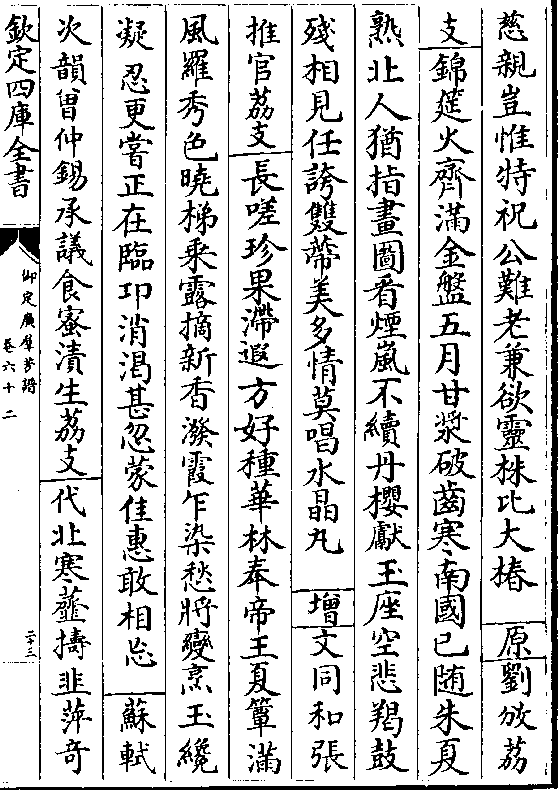 慈親豈惟特祝公難老兼欲靈株比大椿 原 劉攽荔
支 錦筵火齊滿金盤五月甘漿破齒寒南國已随朱夏
熟北人猶指畫圖看煙嵐不續丹櫻獻玉座空悲羯鼓
殘相見任誇雙蔕美多情莫唱水晶丸 增 文同和張
推官荔支 長嗟珍果滯遐方好種華林奉帝王夏簟滿
風羅秀色曉梯乘露摘新香潑霞乍染愁將變烹玉纔
凝忍更嘗正在臨邛消渴甚忽蒙佳惠敢相忘 蘇軾
次韻曾仲錫承議食蜜漬生荔支 代北寒虀擣韭萍奇
欽定四庫全書
御定廣羣芳譜
卷六十二
二十三